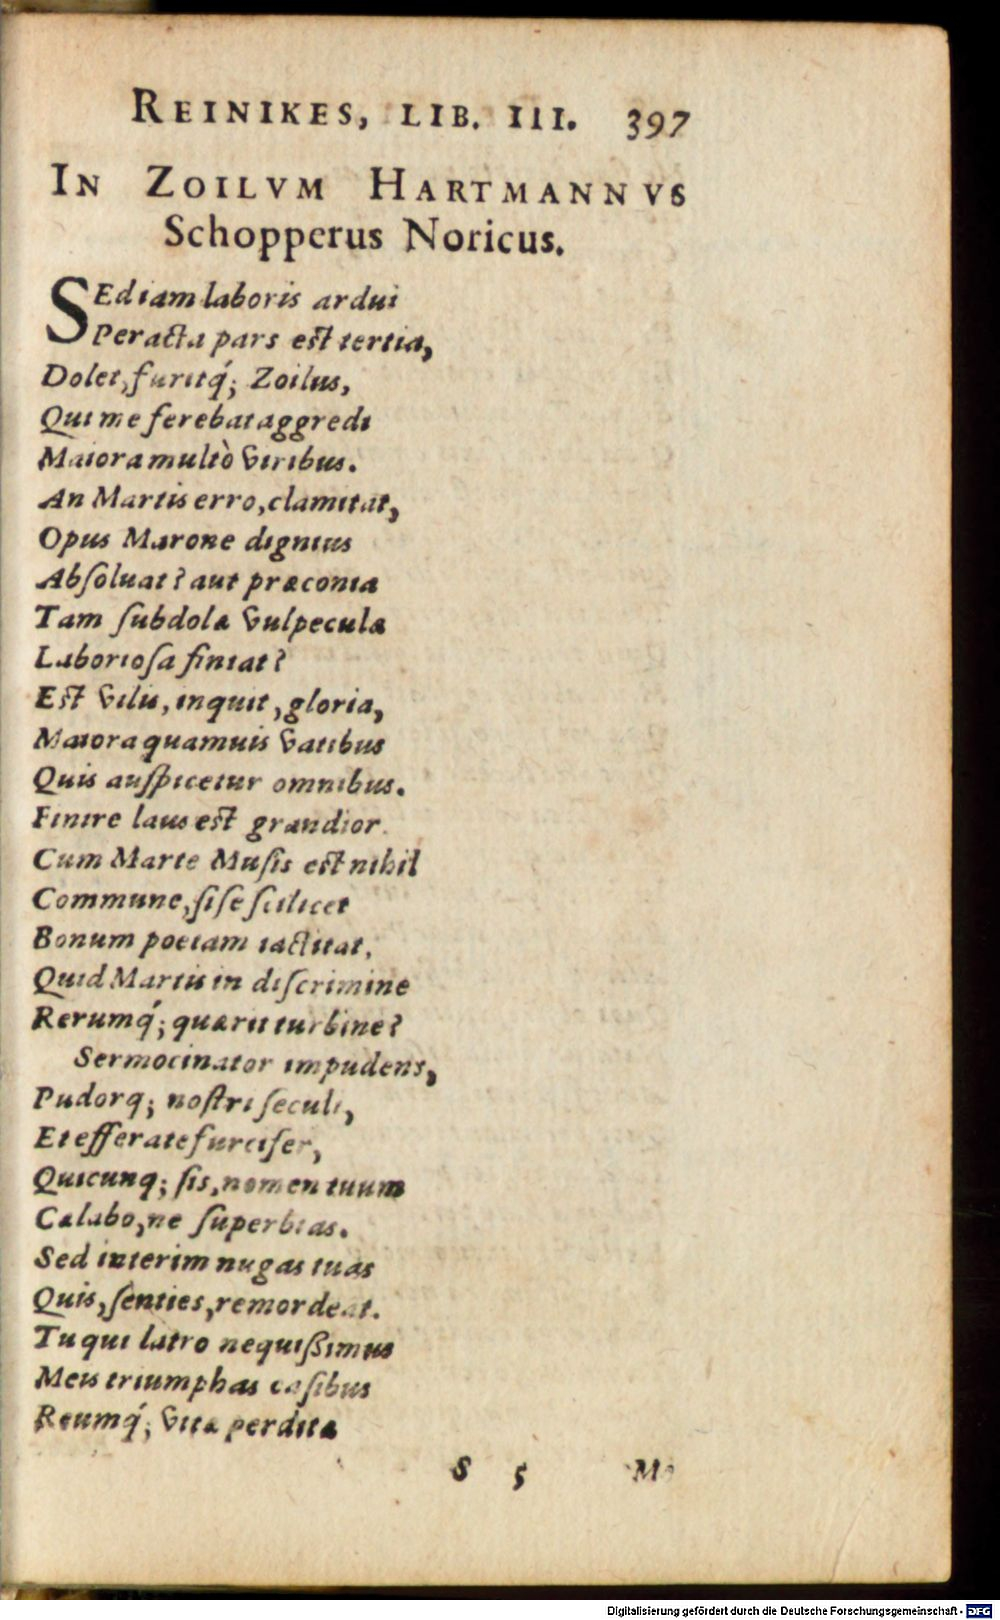 REINIKES, LIB. III. 397
IN ZOILVM HARTMANNVS
Schopperus Noricus.
SEd iam laboris ardui
Peracta pars est tertia,
Dolet, furitq́; Zoilus,
Qui me ferebat aggredi
Maiora multò viribus.
An Martis erro, clamitat,
Opus Marone dignius
Absoluat? aut præconia
Tam subdolæ vulpeculæ
Laboriosa finiat?
Est vilis, inquit, gloria,
Maiora quamuis vatibus
Quis auspicetur omnibus.
Finire laus est grandior.
Cum Marte Musis est nihil
Commune, si se scilicet
Bonum poetam iactitat,
Quid Martis in discrimine
Rerumq́; quærit turbine?
Sermocinator impudens,
Pudorq; nostri seculi,
Et efferate furcifer,
Quicunq; sis, nomen tuum
Cælabo, ne superbias.
Sed interim nugas tuas
Quis, senties, remordeat.
Tu qui latro nequißimus
Meis triumphas casibus
Reumq́; vitæ perditæ
S 5
Digitalisierung gefördert durch die Deutsche Forschungsgemeinschaft - DFG